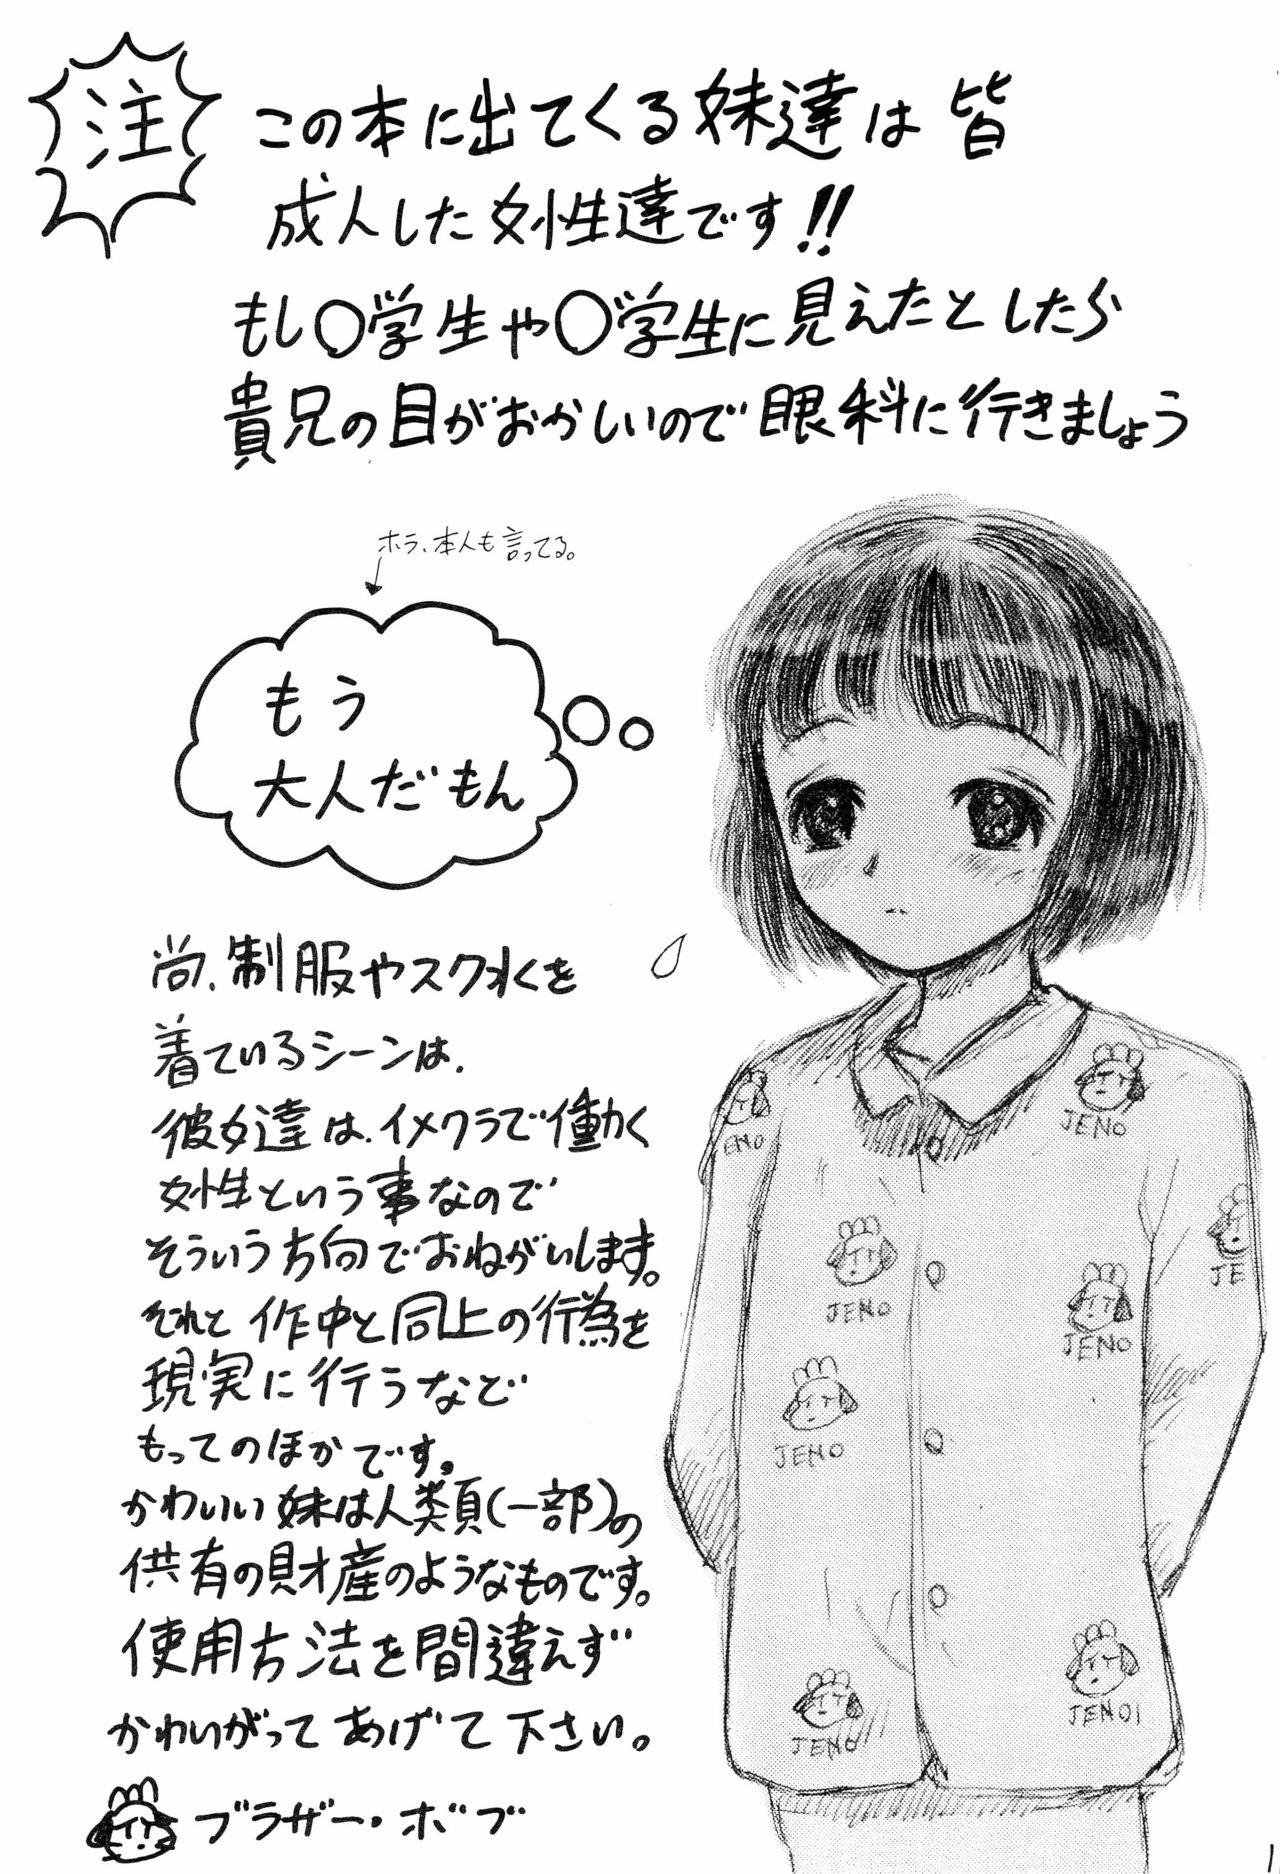 注
この本に出てくる妹達は皆
成人した女性達です!!
もし〇学生や〇学生に見えたとしたら
貴兄の目がおかしいので眼科に行きましょう
ホラ、本人も言ってる。
もう
大人だもん
尚、制服やスク水を
着ているシーンは、
彼女達は、イメクラで働く
女性という事なので
そういう方向でおねがいします。
それと作中と同上の行為を
現実に行うなど
もってのほかです。
かわいい妹は人類(一部)の
共有の財産のようなものです。
使用方法を間違えず
かわいがってあげて下さい。
ブラザー・ボブ
ENO
JENO
JE
JENO
JENO
JENO
JENO
JENO
1